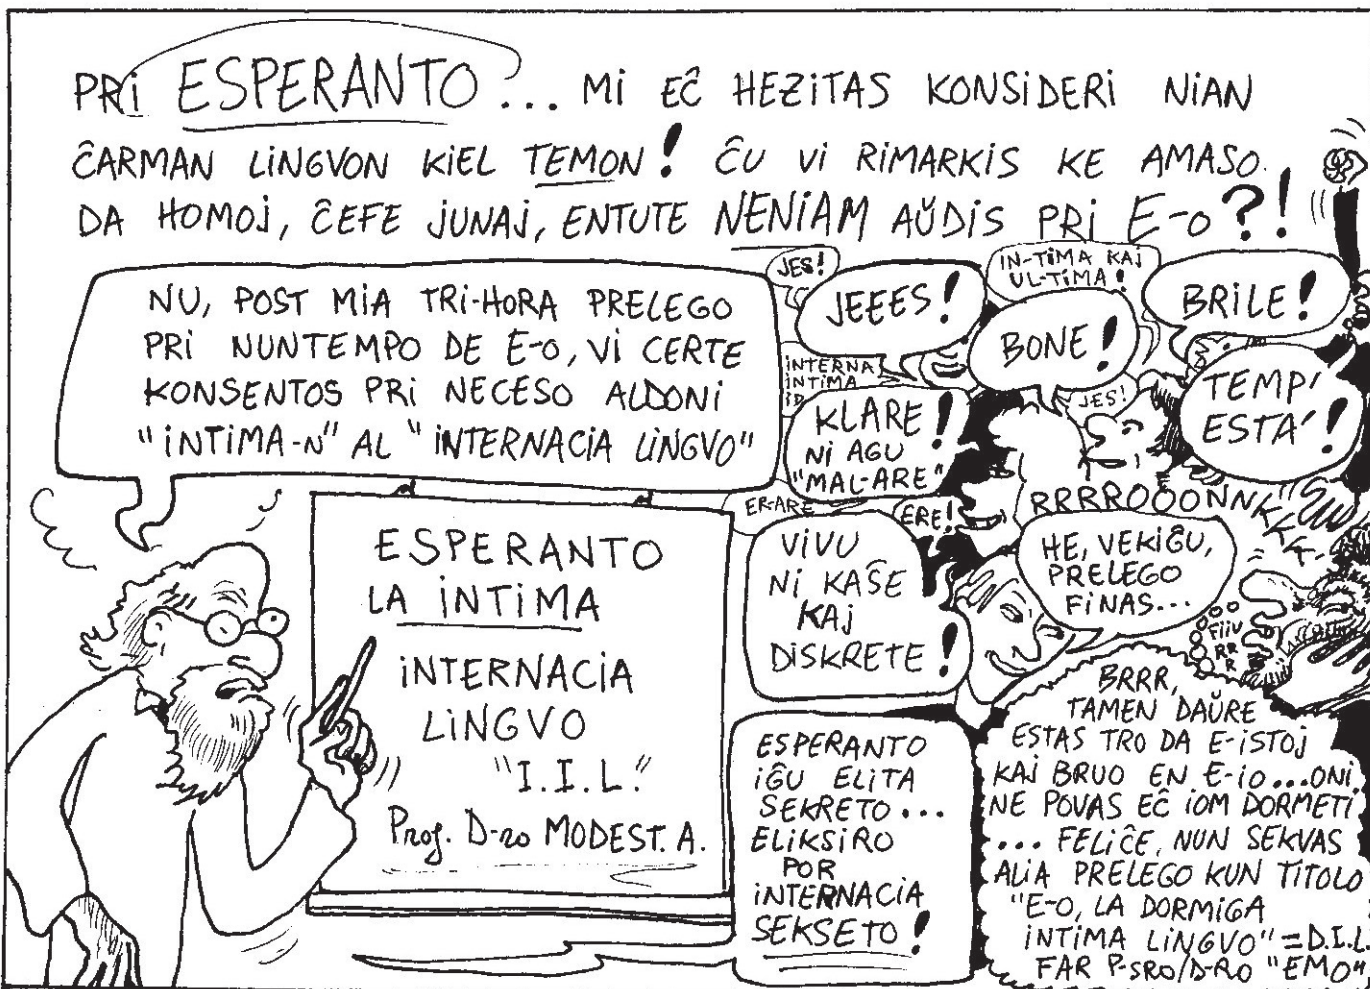 PRI ESPERANTO... MI EĈ HEZITAS KONSIDERI NIAN
ĈARMAN LINGVON KIEL TEMON! ĈU VI RIMARKIS KE AMASO
DA HOMOJ, ĈEFE JUNAJ, ENTUTE NENIAM AŬDIS PRI E-O?!
NU, POST MIA TRI-HORA PRELEGO
PRI NUNTEMPO DE E-O, VI CERTE
KONSENTOS PRI NECESO ALDONI
"INTIMA-N" AL "INTERNACIA LINGVO"
JES!
JEEES!
IN-TIMA KAJ
UL-TIMA!
BONE!
BRILE!
INTERNA
INTIMA
JES!
TEMP'
ESTA'!
KLARE!
NI AGU
"MAL-ARE"
ER-ARE
ERE!
RRRROOONNKKK
ESPERANTO
LA INTIMA
INTERNACIA
LINGVO
"I.I.L."
Prof. D-ro MODEST. A.
VIVU
NI KAŜE
KAJ
DISKRETE!
HE, VEKIĜU,
PRELEGO
FINAS...
FIIU
RR
R
ESPERANTO
IĜU ELITA
SEKRETO...
ELIKSIRO
POR
INTERNACIA
SEKSETO!
BRRR,
TAMEN DAŬRE
ESTAS TRO DA E-ISTOJ
KAJ BRUO EN E-IO...ONI
NE POVAS EĈ IOM DORMETI
... FELIĈE, NUN SEKVAS
ALIA PRELEGO KUN TITOLO
"E-O, LA DORMIGA
INTIMA LINGVO" = D.I.L.
FAR P-SRO/D-RO "EMO"